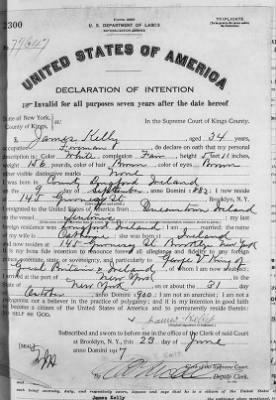 Form 2203
2300
U. S. DEPARTMENT OF LABOR
NATURALIZATION SERVICE
TRIPLICATE
No. 79647
UNITED STATES OF AMERICA
DECLARATION OF INTENTION
Invalid for all purposes seven years after the date hereof
State of New York,
County of Kings,
In the Supreme Court of Kings County.
I, James Kelly aged 34 years,
occupation Fireman, do declare on oath that my personal
description is: Color White, complexion Fair, height 5 feet 11 inches,
weight 156 pounds, color of hair Brown, color of eyes Brown
other visible distinctive marks None
I was born in County Longford Ireland
on the 9 day of September, anno Domini 1882; I now reside
at 145 Street, Brooklyn, N.Y.
I emigrated to the United States of America from Queenstown, Ireland
on the vessel ; my last
foreign residence was Longford Ireland; I am married. The name
of my wife is ; she was born in Ireland
and now resides at 145 St Brooklyn New York
It is my bona fide intention to renounce forever all allegiance and fidelity to any foreign
prince, potentate, state, or sovereignty, and particularly to George V King of
Great Britain & Ireland, of whom I am now subject;
I arrived at the port of New York, in the
State of New York, on or about the 31 day
of October, anno Domini 1900; I am not an anarchist; I am not a
polygamist nor a believer in the practice of polygamy; and it is my intention in good faith
to become a citizen of the United States of America and to permanently reside therein:
SO HELP ME GOD.
James Kelly
Subscribed and sworn to before me in the office of the Clerk of said Court
at Brooklyn, N. Y., this 23 day of June
anno Domini 1917
Clerk of the Supreme Court.
Deputy Clerk.
James Kelly